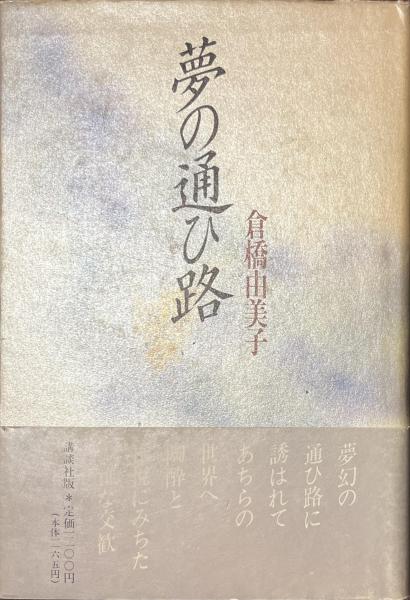 夢の通ひ路
倉橋由美子
夢幻の
通ひ路に
誘はれて
あちらの
世界へ
酔と
にみちた
な交歓
講談社版*定価一二〇〇円
(本体一一六五円)